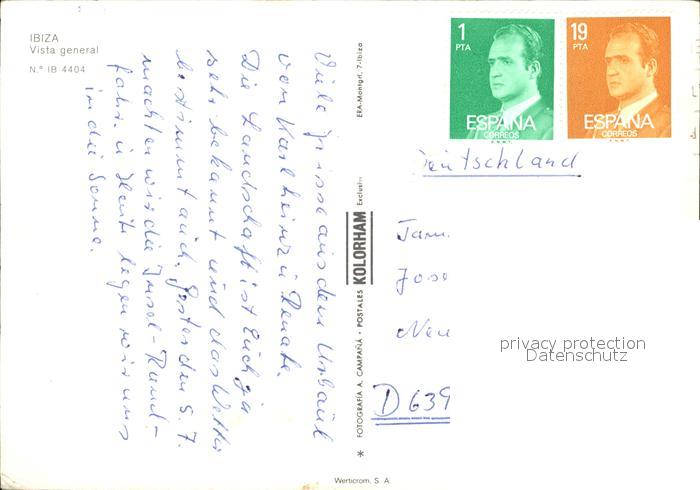 IBIZA
Vista general
N.º IB 4404
Viele Grüsse aus dem Urlaub
von Karlheinz u. Renate.
Die Landschaft ist Euch ja
sehr bekannt und das Wetter
bestimmt auch. Gestern den 5. 7.
machten wir die Insel-Rund-
fahrt u. Heute legen wir uns
in die Sonne.
ERA-Montgrí, 7-Ibiza
FOTOGRAFÍA A. CAMPAÑÁ - POSTALES KOLORHAM Exclusiv
Werticrom, S. A.
1
PTA
ESPAÑA
CORREOS
19
PTA
ESPAÑA
CORREOS
Deutschland
Fam.
Jose
D 639
privacy protection
Datenschutz